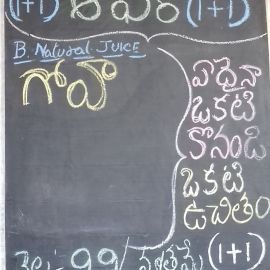 (1+1) ఆఫర్ (1+1)
B. Natural JUICE
గోవా
ఏదైనా
ఒకటి
కొనండి
ఒకటి
ఉచితం
వెల: 99/ మాత్రమే (1+1)